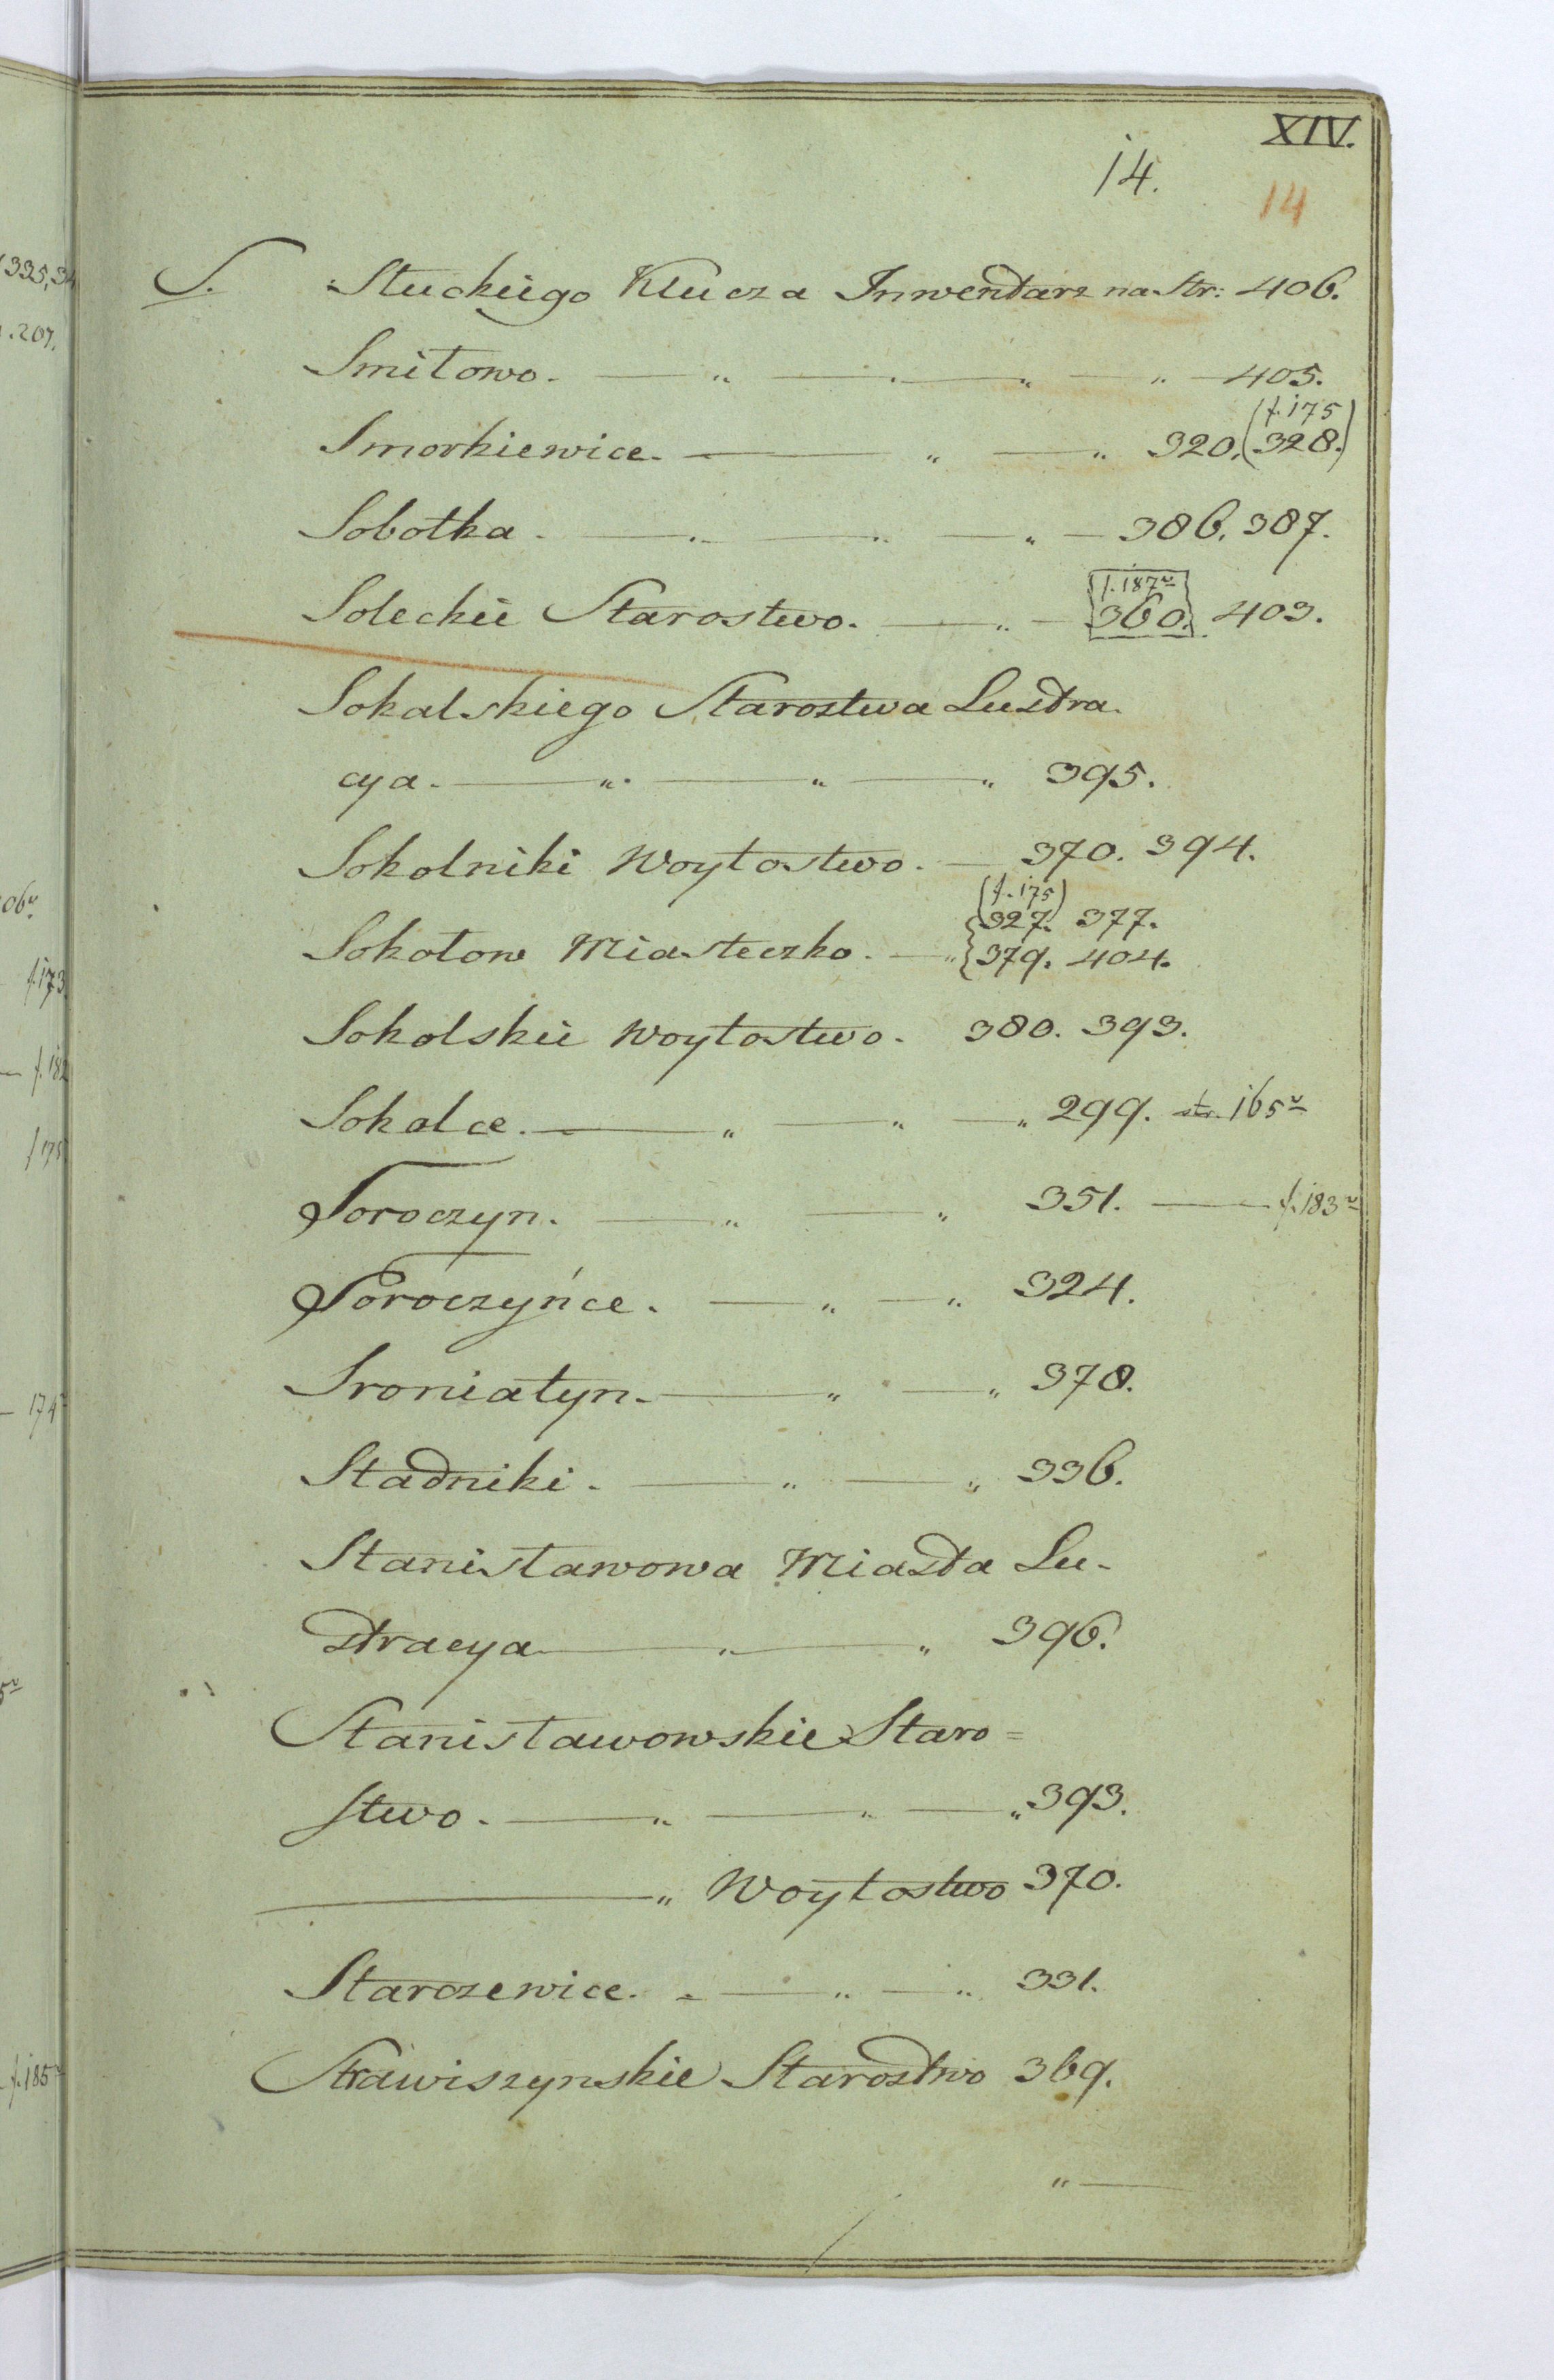 XIV.
14.
14
S. Słuckiego Klucza Inwentarz na Str: 406.
Smiłowo. — „ — „ — „ — „ — 405.
(f. 175
Smorkiewice. — „ — „ 320. (328.)
Sobotka. — „ — „ — „ — 386. 387.
f. 187v
Soleckie Starostwo. — „ — 360. 403.
Sokalskiego Starostwa Lustra.
cya. — „ — „ — „ 395.
Sokolniki Woytostwo. — 370. 394.
(f. 175)
327. 377.
Sokołow Miasteczko. — „ 379. 404.
Sokolskie Woytostwo. 380. 393.
Sokolce. — „ — „ — „ 299. str. 165v
Soroczyn. — „ — „ 351. — f. 183v
Soroczyńce. — „ — „ 324.
Sroniatyn. — „ — „ 378.
Stadniki. — „ — „ 336.
Stanisławowa Miasta Lu-
stracya — „ — „ 396.
Stanisławowskie Staro=
stwo. — „ — „ — „ 393.
— „ Woytostwo 370.
Starczewice. — „ — „ 331.
Stawiszynskie Starostwo 369.
„ —
335, 34
207.
06v
f. 173
— f. 182
f 175
— 174
5v
f. 185v